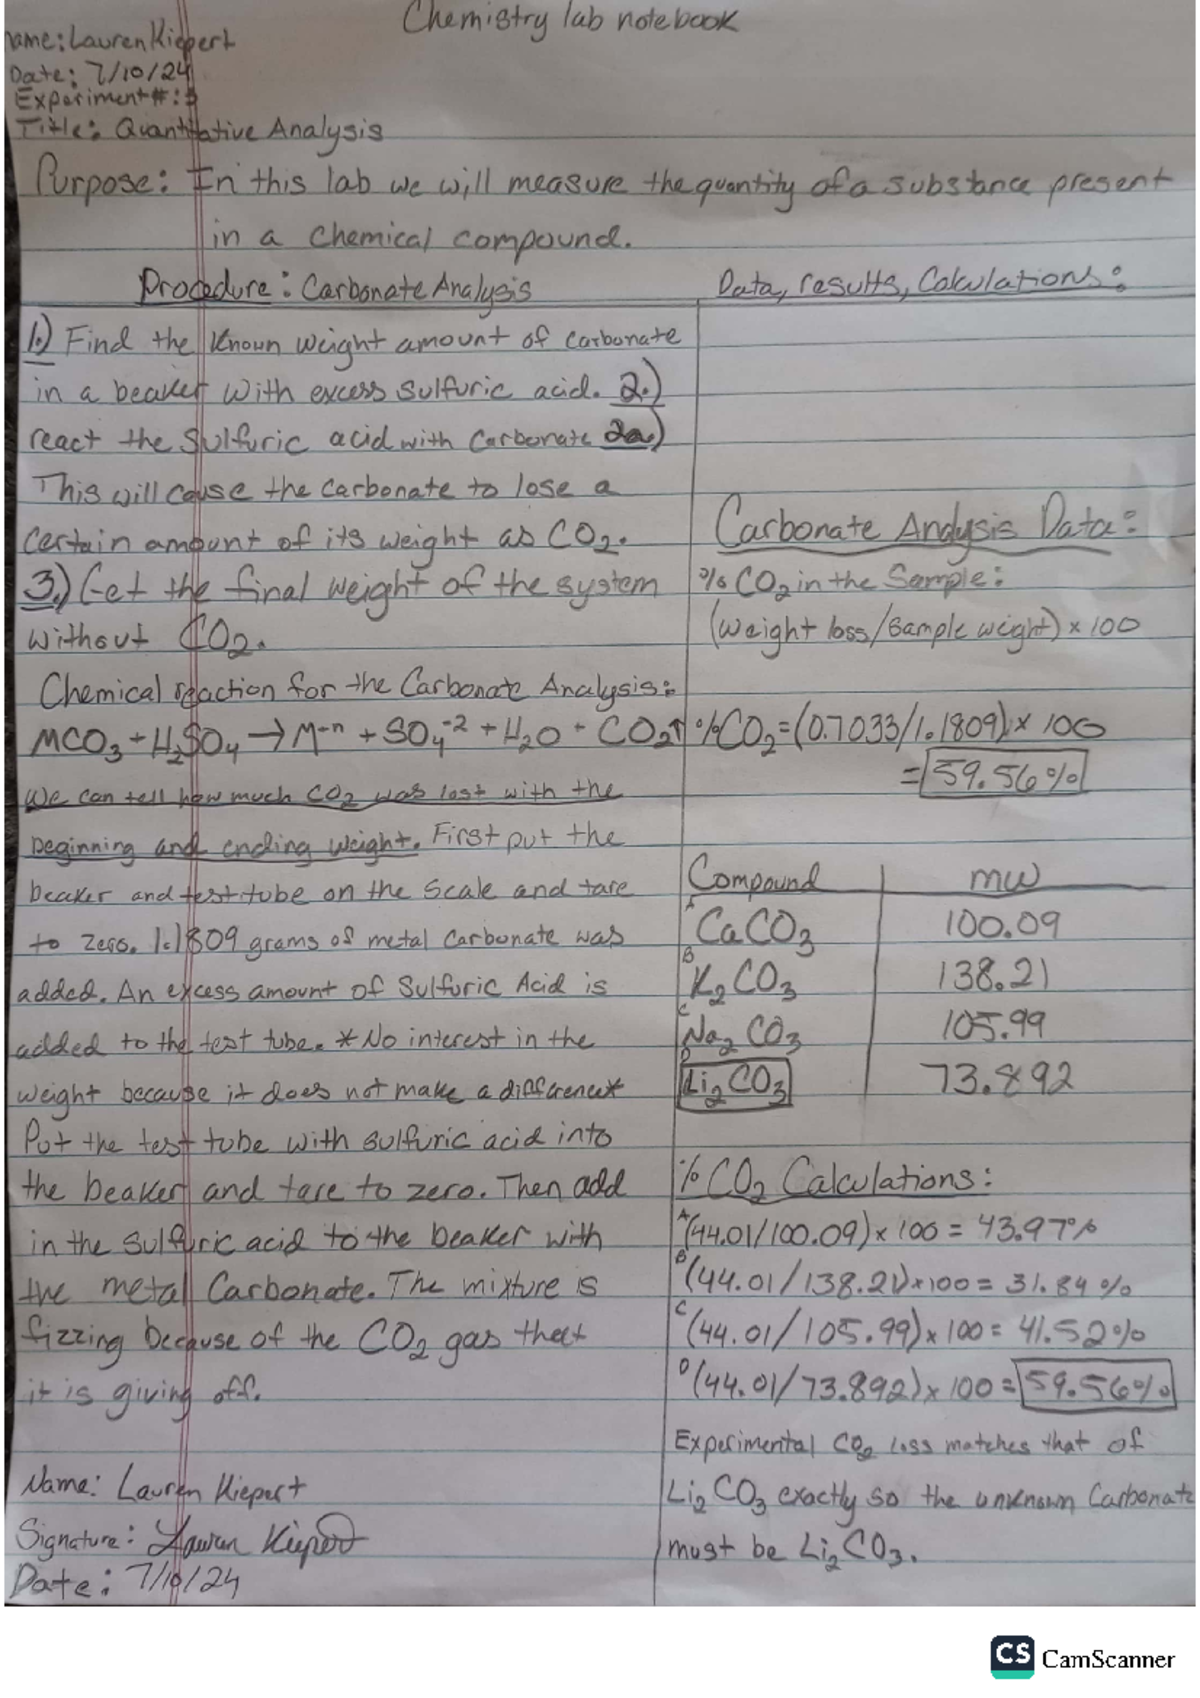 Chemistry lab notebook
Name: Lauren Kiepert
Date: 7/10/24
Experiment #: 3
Title: Quantitative Analysis
Purpose: In this lab we will measure the quantity of a substance present
in a chemical compound.
Procedure: Carbonate Analysis
1.) Find the known weight amount of carbonate
in a beaker with excess sulfuric acid. 2.)
react the sulfuric acid with carbonate 2a.)
This will cause the carbonate to lose a
certain amount of its weight as CO₂.
3.) Get the final weight of the system
without CO₂.
Chemical reaction for the Carbonate Analysis:
MCO₃ + H₂SO₄ → M⁻ⁿ + SO₄⁻² + H₂O + CO₂↑
We can tell how much CO₂ was lost with the
beginning and ending weight. First put the
beaker and test tube on the scale and tare
to zero. 1.1809 grams of metal carbonate was
added. An excess amount of Sulfuric Acid is
added to the test tube. *No interest in the
weight because it does not make a difference*
Put the test tube with sulfuric acid into
the beaker and tare to zero. Then add
in the sulfuric acid to the beaker with
the metal Carbonate. The mixture is
fizzing because of the CO₂ gas that
it is giving off.
Name: Lauren Kiepert
Signature: Lauren Kiepert
Date: 7/10/24
Data, results, Calculations:
Carbonate Analysis Data:
% CO₂ in the Sample:
(weight loss/sample weight) x 100
%CO₂ = (0.7033/1.1809) x 100
= 59.56%
Compound mw
A CaCO₃ 100.09
B K₂CO₃ 138.21
C Na₂CO₃ 105.99
D Li₂CO₃ 73.892
% CO₂ Calculations:
A (44.01/100.09) x 100 = 43.97%
B (44.01/138.21) x 100 = 31.84%
C (44.01/105.99) x 100 = 41.52%
D (44.01/73.892) x 100 = 59.56%
Experimental CO₂ loss matches that of
Li₂CO₃ exactly so the unknown Carbonate
must be Li₂CO₃.
CS CamScanner